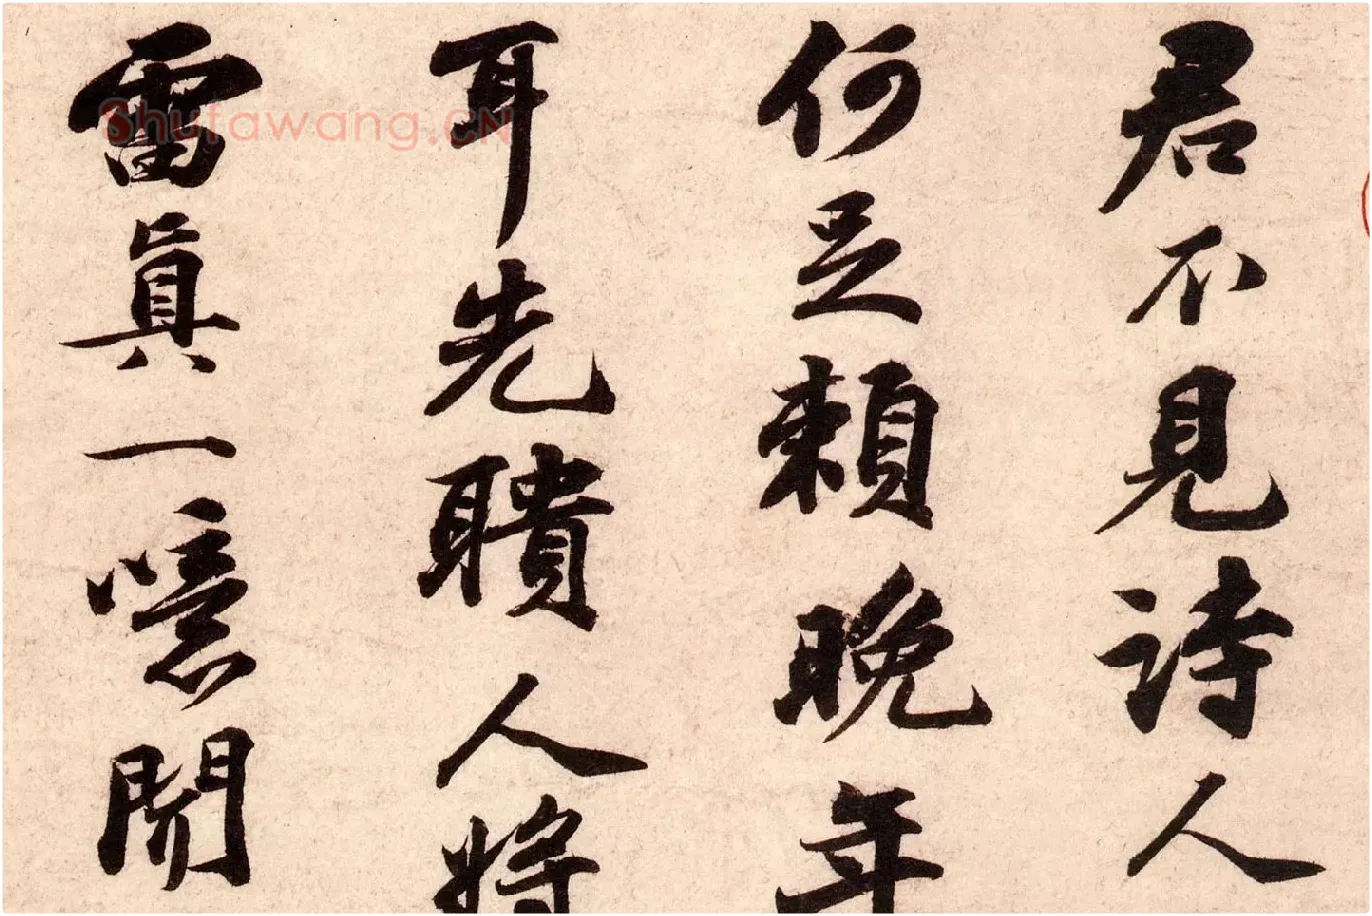 君不見詩人
何足賴晚年
耳先聵人將
雷眞一噫聞
Shufawang.CN